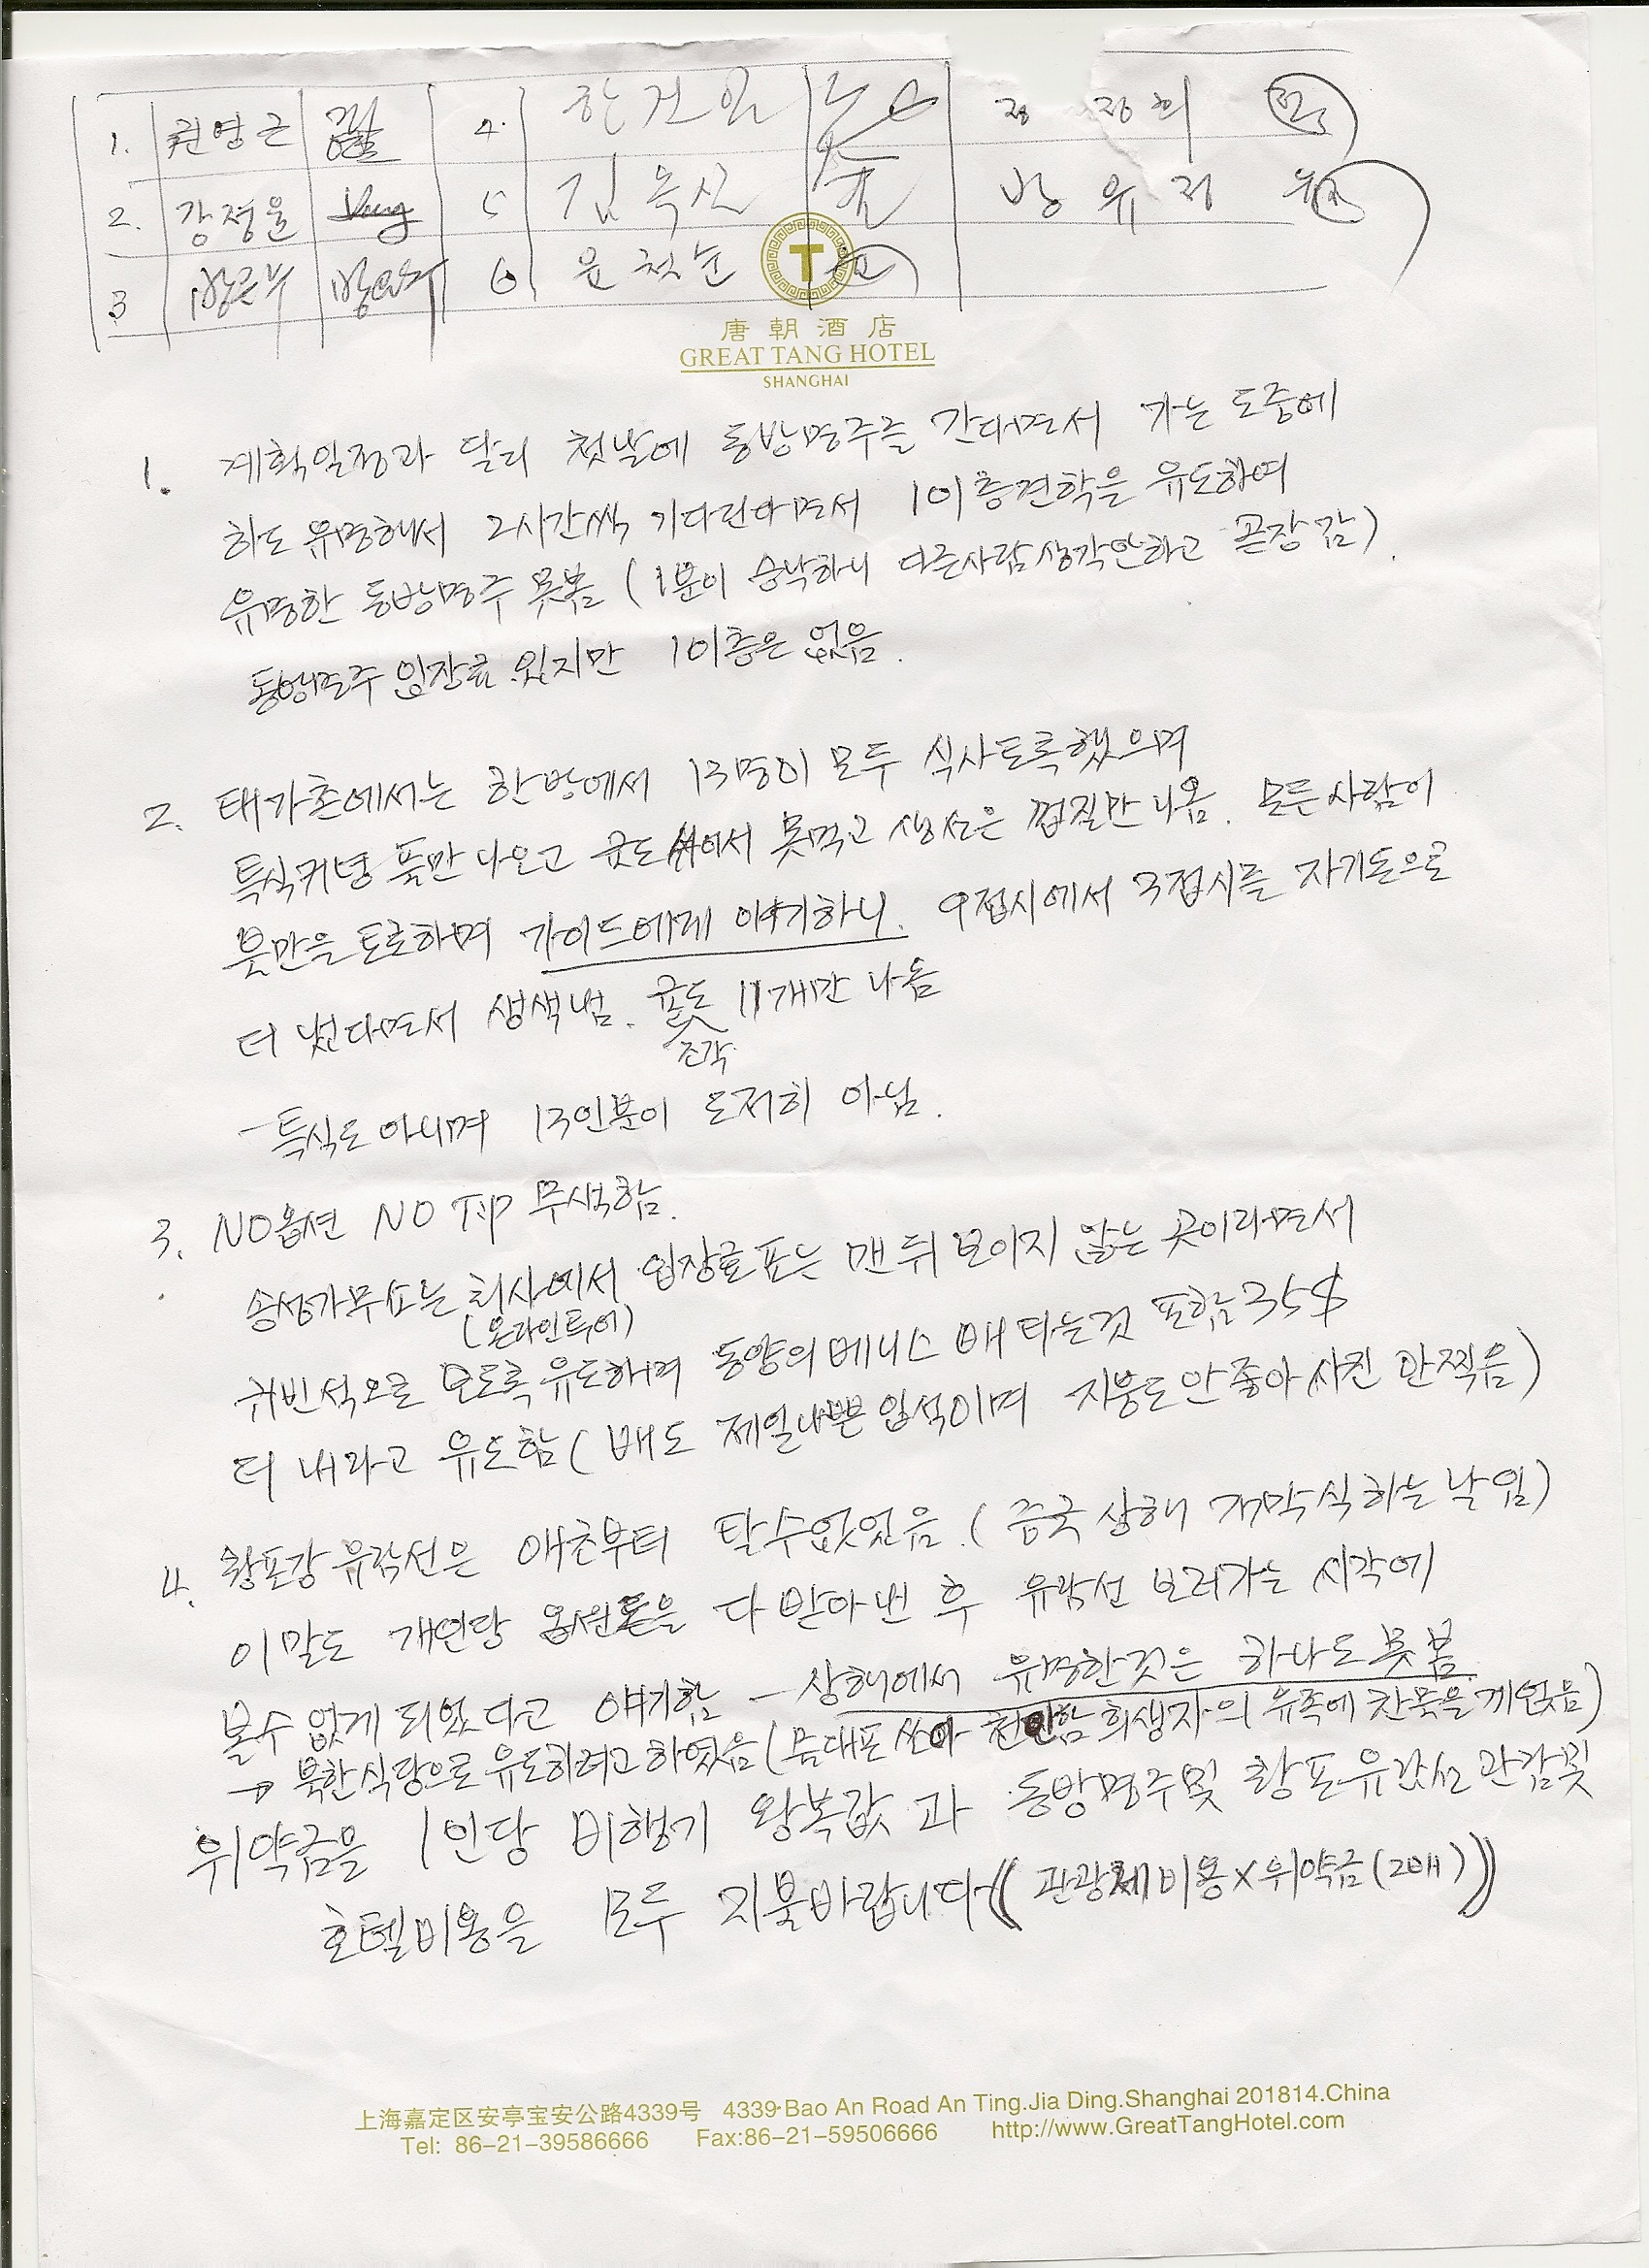 1. 권영근 4. 한건일 정 정희
2. 강정율 5 김옥선 방유정
3 6 윤첫순
唐朝酒店
GREAT TANG HOTEL
SHANGHAI
1. 계획일정과 달리 첫날에 동방명주를 간다면서 가는 도중에
하도 유명해서 2시간씩 기다린다면서 101층견학을 유도하여
유명한 동방명주 못봄 (1분이 승낙하니 다른사람생각안하고 곧장 감).
동방명주 입장료 있지만 101층은 없음.
2. 태가촌에서는 한방에서 13명이 모두 식사토록했으며
특식커녕 풀만 나오고 굿도 서 못먹고 생선은 껍질만 나옴. 모든사람이
붓만을 토로하며 가이드에게 이야기하니. 9접시에서 3접시를 자기돈으로
더 냈다면서 생색냄. 굿도 11개만 나옴
조각
- 특식도 아니며 13인분이 도저히 아님.
3. NO옵션 NO TIP 무색함.
송성가무쇼는 회사에서 입장료표는 맨뒤 보이지 않는 곳이라면서
(온라인투어)
귀빈석으로 모도록유도하며 동양의베니스 배 타는것 포함 35$
더 내라고 유도함 (배도 제일나쁜입석이며 지붕도안좋아 사진 안찍음)
4. 황포강유람선은 애초부터 탈수없었음. (중국상해 개막식하는날임)
이말도 개인당 옵션돈을 다 받아낸 후 유람선 보러가는 시각에
볼수없게 되었다고 얘기함 - 상해에서 유명한것은 하나도 못봄
→ 북한식당으로유도하려고하였음 ( 쏘아 천안함희생자의 유족에 찬물을끼얹음)
위약금을 1인당 비행기 왕복값과 동방명주및 황포유람선관람및
호텔비용을 모두 지불바랍니다 ((관광체비용×위약금(2배)))
上海嘉定区安亭宝安公路4339号 4339 Bao An Road An Ting.Jia Ding.Shanghai 201814.China
Tel: 86-21-39586666 Fax:86-21-59506666 http://www.GreatTangHotel.com